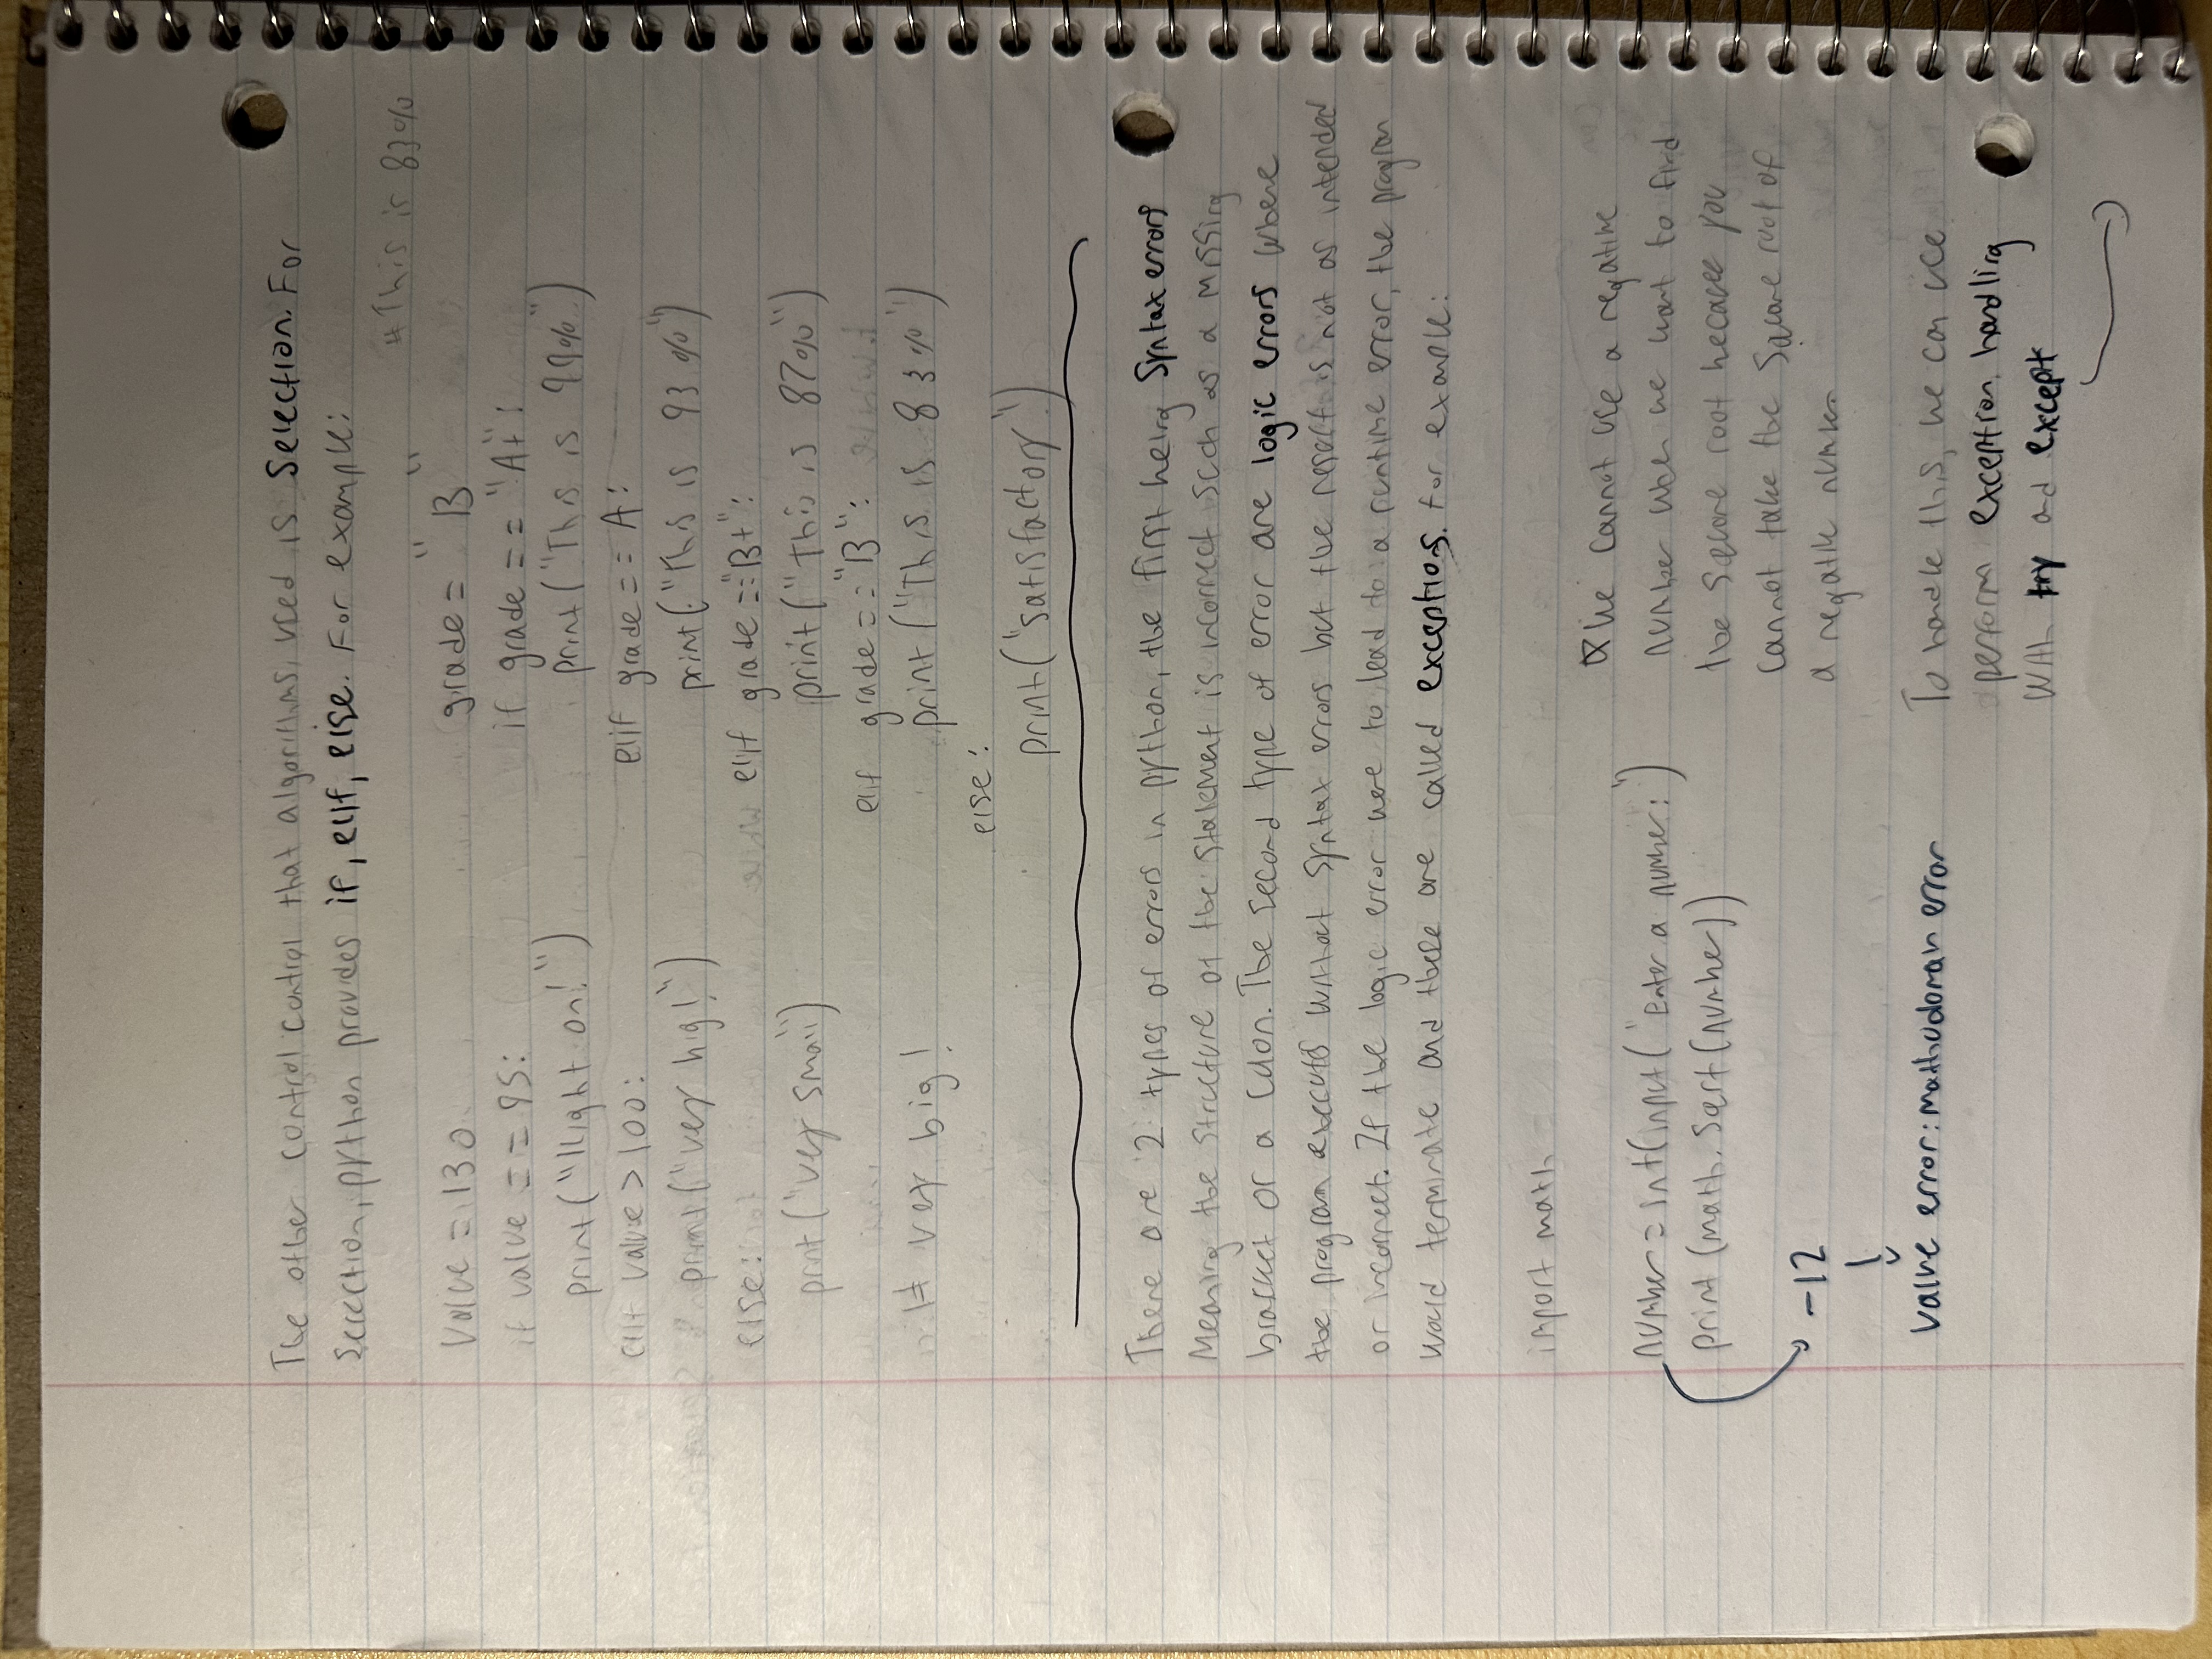 The other control control that algorithms, used is Selection. For
Selection, python provides if, elif, else. For example:
#This is 83%
Value = 130
if value == 95:
print("Right on!")
elif value > 100:
print("very big!")
else:
print("very small")
# very big!
grade = "B"
if grade == "A+":
print("This is 99%")
elif grade == A:
print("This is 93%")
elif grade == "B+":
print("This is 87%")
elif grade == "B":
print("This is 83%")
else:
print("satisfactory")
There are 2 types of errors in python, the first being Syntax errors
Meaning the structure of the statement is incorrect such as a missing
bracket or a colon. The second type of error are logic errors where
the program executes without syntax errors but the result is not as intended
or incorrect. If the logic error were to lead to a runtime error, the program
would terminate and these are called exceptions. For example:
import math
number = int(input("Enter a number:")
print(math.sqrt(number))
-12
Value error: math domain error
We cannot use a negative
number when we want to find
the square root because you
cannot take the square root of
a negative number
To handle this, we can use
perform exception handling
with try and except